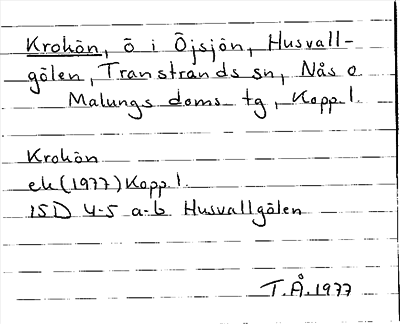 Krokön, ö i Öjsjön, Husvall-
gölen, Transtrands sn, Nås o
Malungs doms tg, Kopp. l.
Krokön
ek (1977) Kopp. l.
15D 4-5 a-b Husvallgölen
T.Å. 1977